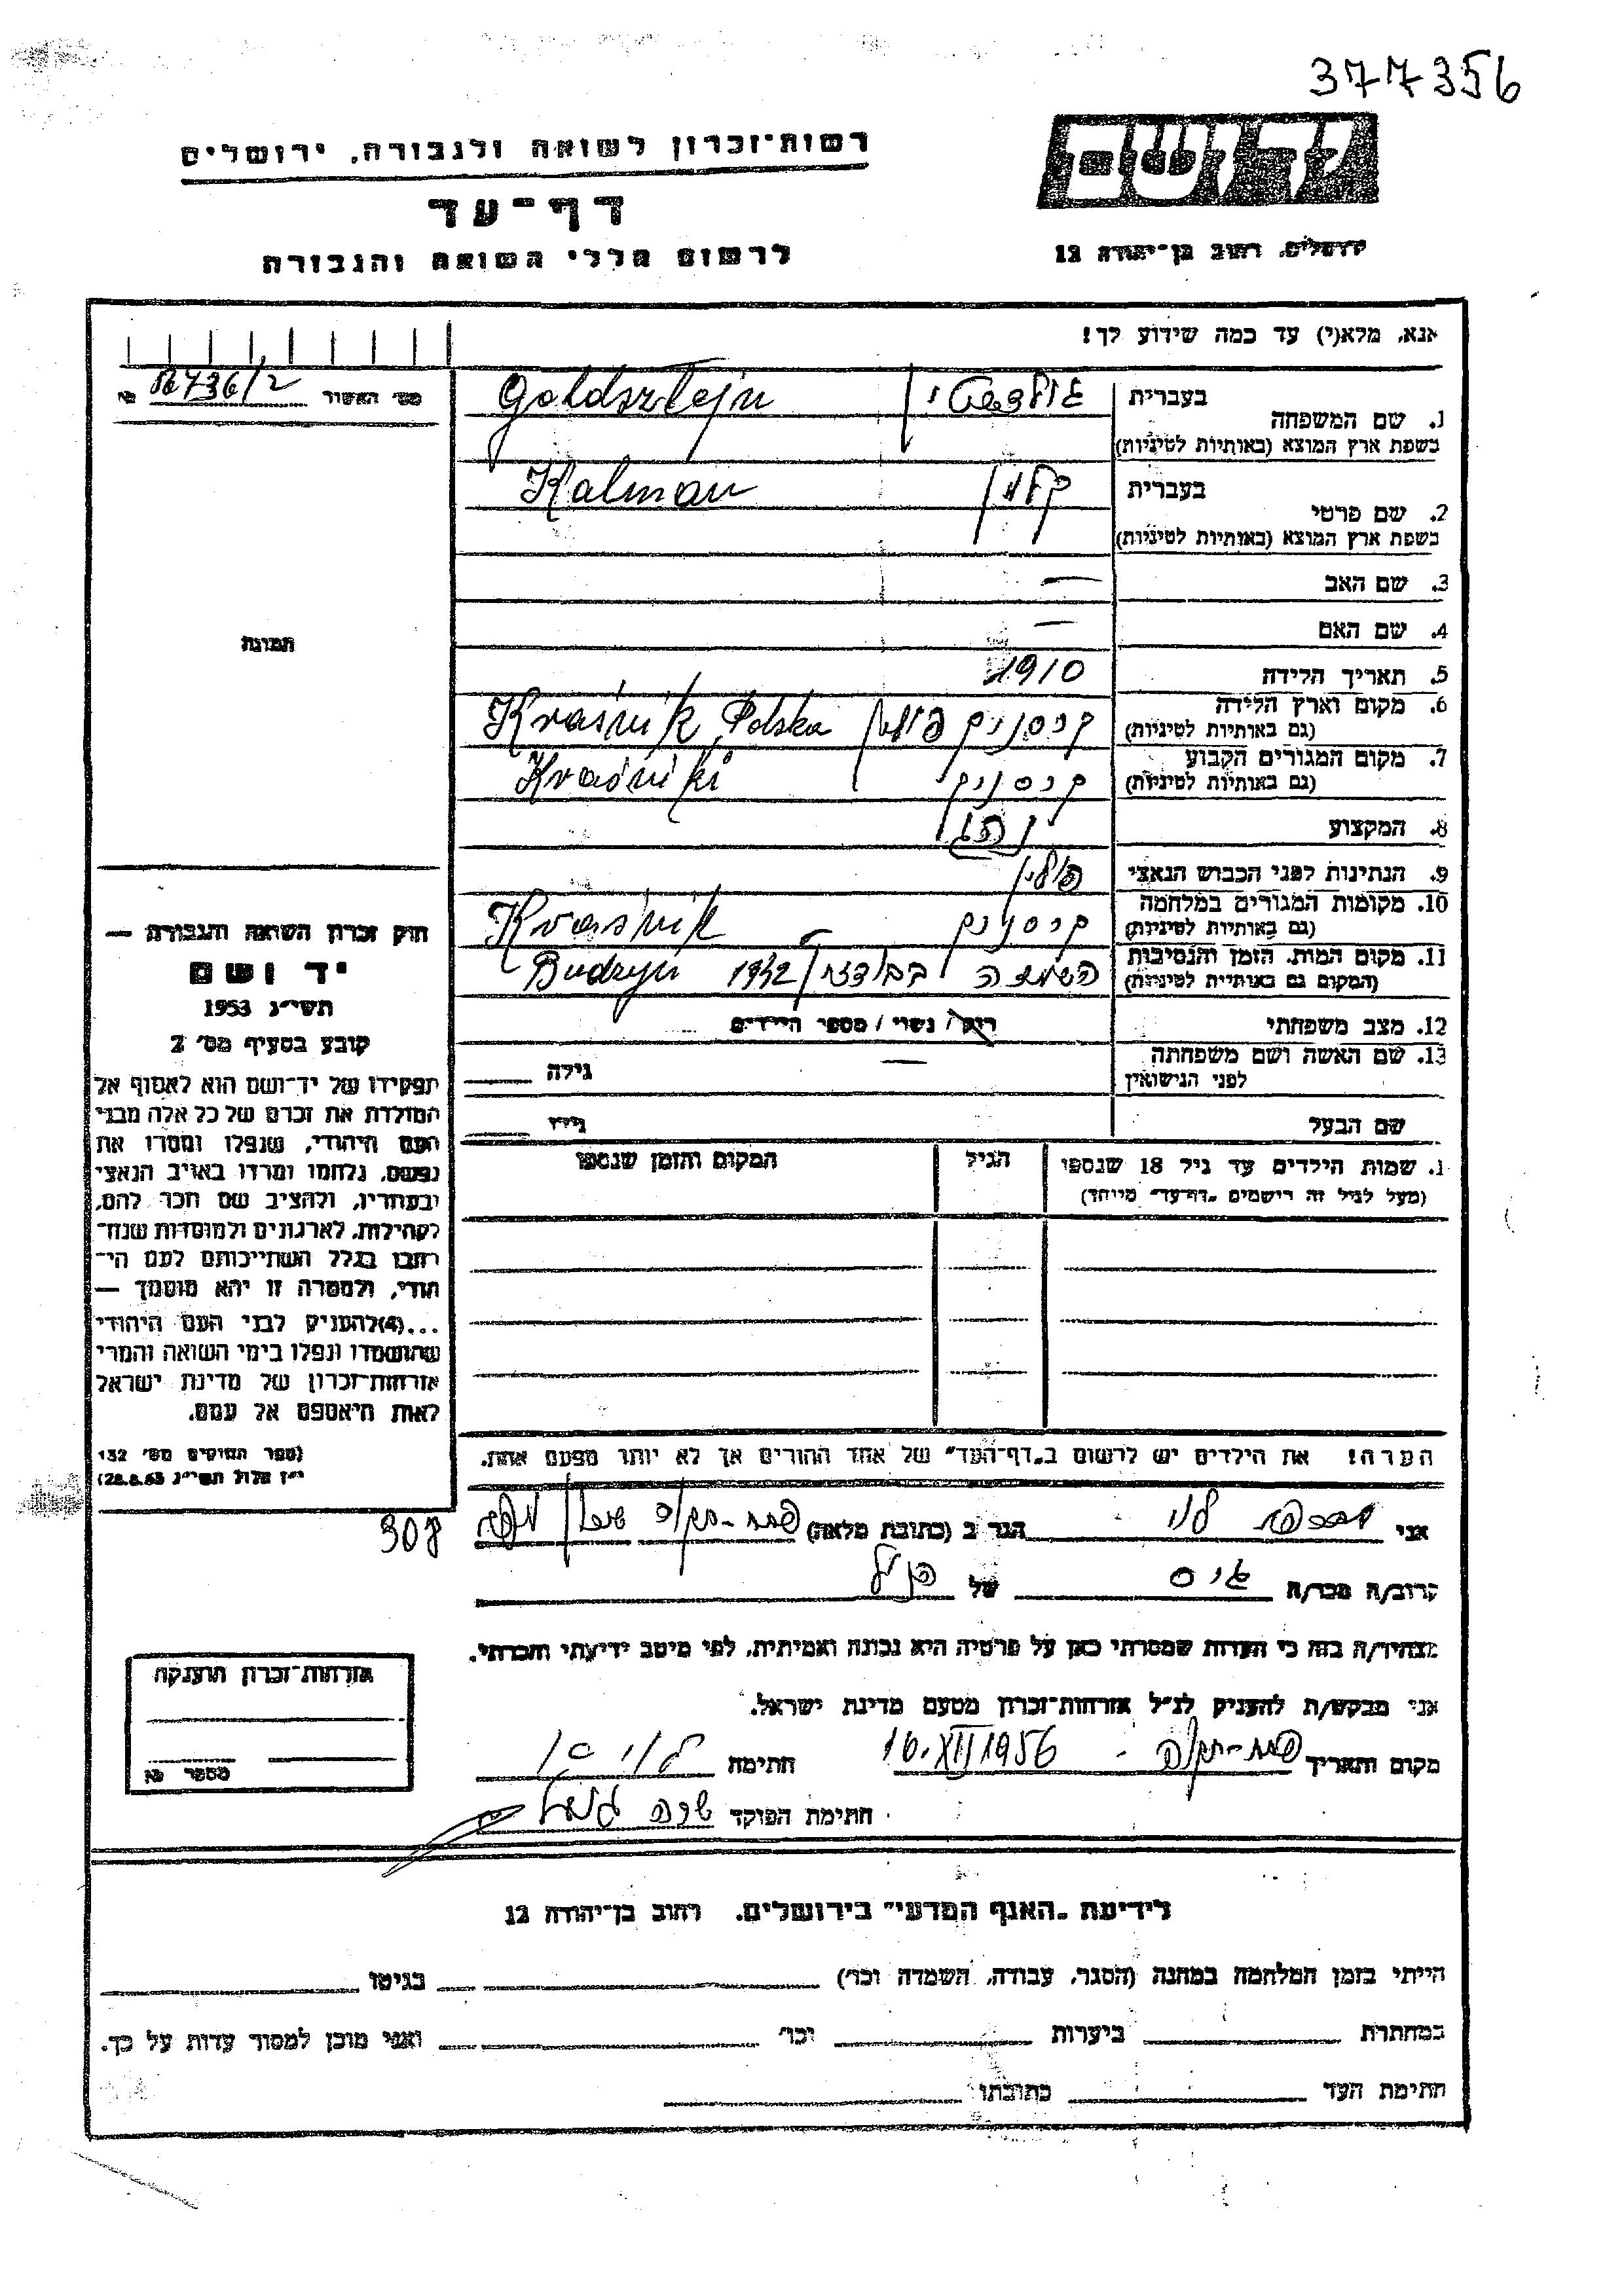 377356
רשות־זכרון לשואה ולגבורה, ירושלים
יד ושם
דף־עד
לרשום חללי השואה והגבורה
ירושלים, רחוב בן־יהודה 12
אנא, מלא(י) עד כמה שידוע לך!
מס׳ האשור
בעברית
1. שם המשפחה
בשפת ארץ המוצא (באותיות לטיניות)
גולדשטיין Goldsztejn
בעברית
2. שם פרטי
בשפת ארץ המוצא (באותיות לטיניות)
קלמן Kalman
3. שם האב —
4. שם האם —
5. תאריך הלידה 1910
6. מקום וארץ הלידה
(גם באותיות לטיניות)
קרסניק פולין Kraśnik Polska
7. מקום המגורים הקבוע
(גם באותיות לטיניות)
קרסניק Kraśniki
8. המקצוע נהג
9. הנתינות לפני הכבוש הנאצי פולין
10. מקומות המגורים במלחמה
(גם באותיות לטיניות)
קרסניק Kraśnik
11. מקום המות, הזמן והנסיבות
(המקום גם באותיות לטיניות)
השמדה 1942 Budzyń
12. מצב משפחתי רווק / נשוי / מספר הילדים
13. שם האשה ושם משפחתה
לפני הנישואין
— גילה
שם הבעל גילו
תמונה
חוק זכרון השואה והגבורה —
יד ושם
תשי״ג 1953
קובע בסעיף מס׳ 2
תפקידו של יד־ושם הוא לאסוף אל
המולדת את זכרם של כל אלה מבני
העם היהודי, שנפלו ומסרו את
נפשם, נלחמו ומרדו באויב הנאצי
ובעוזריו, ולהציב שם וזכר להם,
לקהילות, לארגונים ולמוסדות שנח־
רבו בגלל השתייכותם לעם הי־
הודי, ולמטרה זו יהא מוסמך —
...(4)להעניק לבני העם היהודי
שהושמדו ונפלו בימי השואה והמרי
אזרחות־זכרון של מדינת ישראל
לאות היאספם אל עמם.
(ספר החוקים מס׳ 132
י״ז אלול תשי״ג 28.8.53)
1. שמות הילדים עד גיל 18 שנספו
(מעל לגיל זה רישמים „דף־עד״ מיוחד)
הגיל
המקום והזמן שנספו
הערה! את הילדים יש לרשום ב„דף־העד״ של אחד ההורים אך לא יותר מפעם אחת.
308
אני הגר ב (כתובת מלאה) פתח-תקוה
קרוב/ה מכר/ה גיס של הנ״ל
מצהיר/ה בזה כי העדות שמסרתי כאן על פרטיה היא נכונה ואמיתית, לפי מיטב ידיעתי והכרתי.
אני מבקש/ת להעניק לנ״ל אזרחות־זכרון מטעם מדינת ישראל.
מקום ותאריך פתח-תקוה - 16.XII 1956 חתימה
חתימת הפוקד
אזרחות־זכרון הוענקה
מספר
לידיעת „האגף המדעי״ בירושלים, רחוב בן־יהודה 12
הייתי בזמן המלחמה במחנה (הסגר, עבודה, השמדה וכו׳) בגיטו
במחתרת ביערות וכו׳ ואני מוכן למסור עדות על כך.
חתימת העד כתובתו